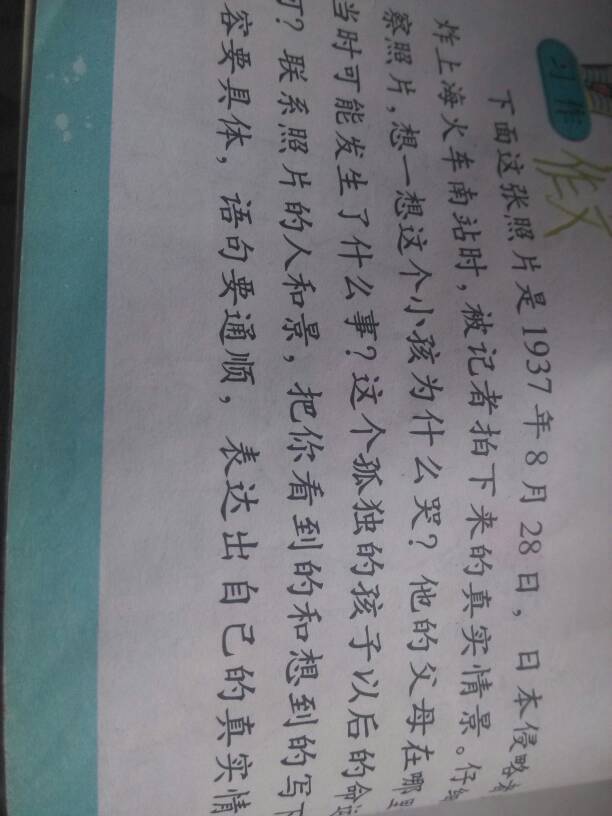 习作
作文
下面这张照片是1937年8月28日，日本侵略
炸上海火车南站时，被记者拍下来的真实情景。仔
察照片，想一想这个小孩为什么哭？他的父母在哪
当时可能发生了什么事？这个孤独的孩子以后的命
？联系照片的人和景，把你看到的和想到的写
容要具体，语句要通顺，表达出自己的真实情